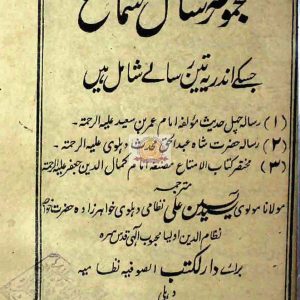 مجموعہ رسائل سماع
جسکے اندر یہ تین رسالے شامل ہیں
(۱) رسالہ چہل حدیث مؤلفہ امام عمر بن سعید علیہ الرحمتہ۔
(۲) رسالہ حضرت شاہ عبدالحق محدث دہلوی علیہ الرحمتہ۔
(۳) مختصر کتاب الامتاع مصنفہ امام کمال الدین جعفر علیہ الرحمتہ
مترجمہ
مولانا مولوی سید یسین علی نظامی دہلوی خواہر زادہ حضرت خواجہ
نظام الدین اولیا محبوب الٰہی قدس سرہ
برائے دار الکتب الصوفیہ نظامیہ
دہلی